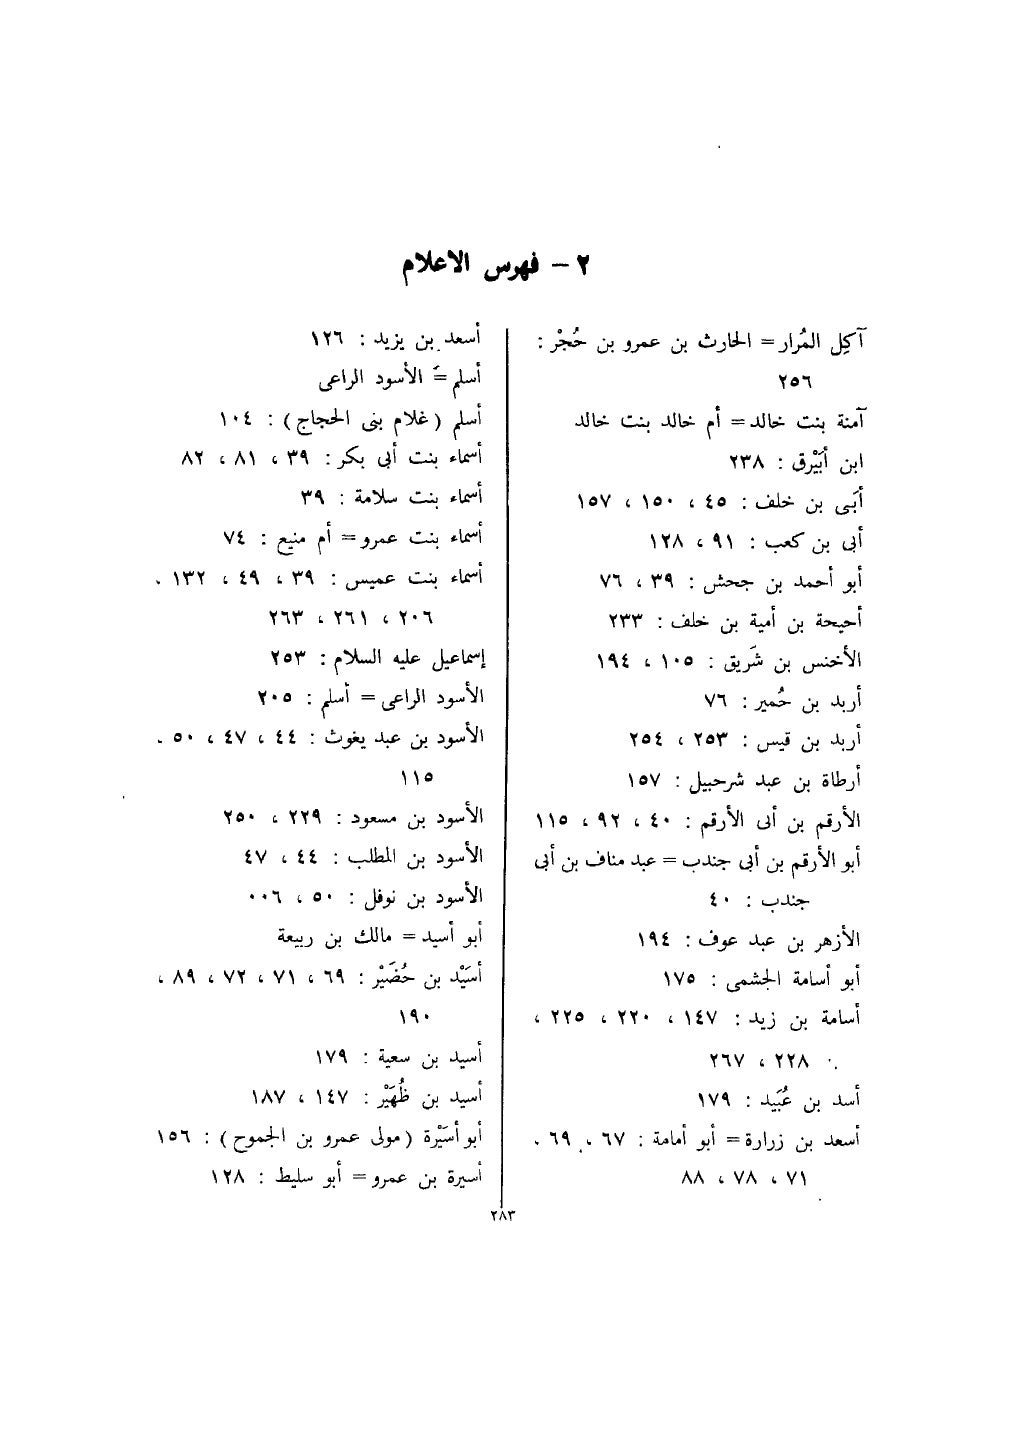 ٢ – فهرس الاعلام
آكِل المُرار = الحارث بن عمرو بن حُجْر :
٢٥٦
آمنة بنت خالد = أم خالد بنت خالد
ابن أبَيْرق : ٢٣٨
أبَى بن خلف : ٤٥ ، ١٥٠ ، ١٥٧
أبى بن كعب : ٩١ ، ١٢٨
أبو أحمد بن جحش : ٣٩ ، ٧٦
أحيحة بن أمية بن خلف : ٢٣٣
الأخنس بن شَريق : ١٠٥ ، ١٩٤
أربد بن حُمير : ٧٦
أربد بن قيس : ٢٥٣ ، ٢٥٤
أرطاة بن عبد شرحبيل : ١٥٧
الأرقم بن أبى الأرقم : ٤٠ ، ٩٢ ، ١١٥
أبو الأرقم بن أبى جندب = عبد مناف بن أبى
جندب : ٤٠
الأزهر بن عبد عوف : ١٩٤
أبو أسامة الجشمى : ١٧٥
أسامة بن زيد : ١٤٧ ، ٢٢٠ ، ٢٢٥ ،
٢٢٨ ، ٢٦٧
أسد بن عُبَيد : ١٧٩
أسعد بن زرارة = أبو أمامة : ٦٧ ، ٦٩ ،
٧١ ، ٧٨ ، ٨٨
أسعد بن يزيد : ١٢٦
أسلم = الأسود الراعى
أسلم (غلام بنى الحجاج) : ١٠٤
أسماء بنت أبى بكر : ٣٩ ، ٨١ ، ٨٢
أسماء بنت سلامة : ٣٩
أسماء بنت عمرو = أم منيع : ٧٤
أسماء بنت عميس : ٣٩ ، ٤٩ ، ١٣٢ ،
٢٠٦ ، ٢٦١ ، ٢٦٣
إسماعيل عليه السلام : ٢٥٣
الأسود الراعى = أسلم : ٢٠٥
الأسود بن عبد يغوث : ٤٤ ، ٤٧ ، ٥٠ ،
١١٥
الأسود بن مسعود : ٢٢٩ ، ٢٥٠
الأسود بن المطلب : ٤٤ ، ٤٧
الأسود بن نوفل : ٥٠ ، ٠٠٦
أبو أسيد = مالك بن ربيعة
أسَيْد بن حُضَيْر : ٦٩ ، ٧١ ، ٧٢ ، ٨٩ ،
١٩٠
أسيد بن سعية : ١٧٩
أسيد بن ظُهَيْر : ١٤٧ ، ١٨٧
أبو أسَيْرة (مولى عمرو بن الجموح) : ١٥٦
أسيرة بن عمرو = أبو سليط : ١٢٨
٢٨٣